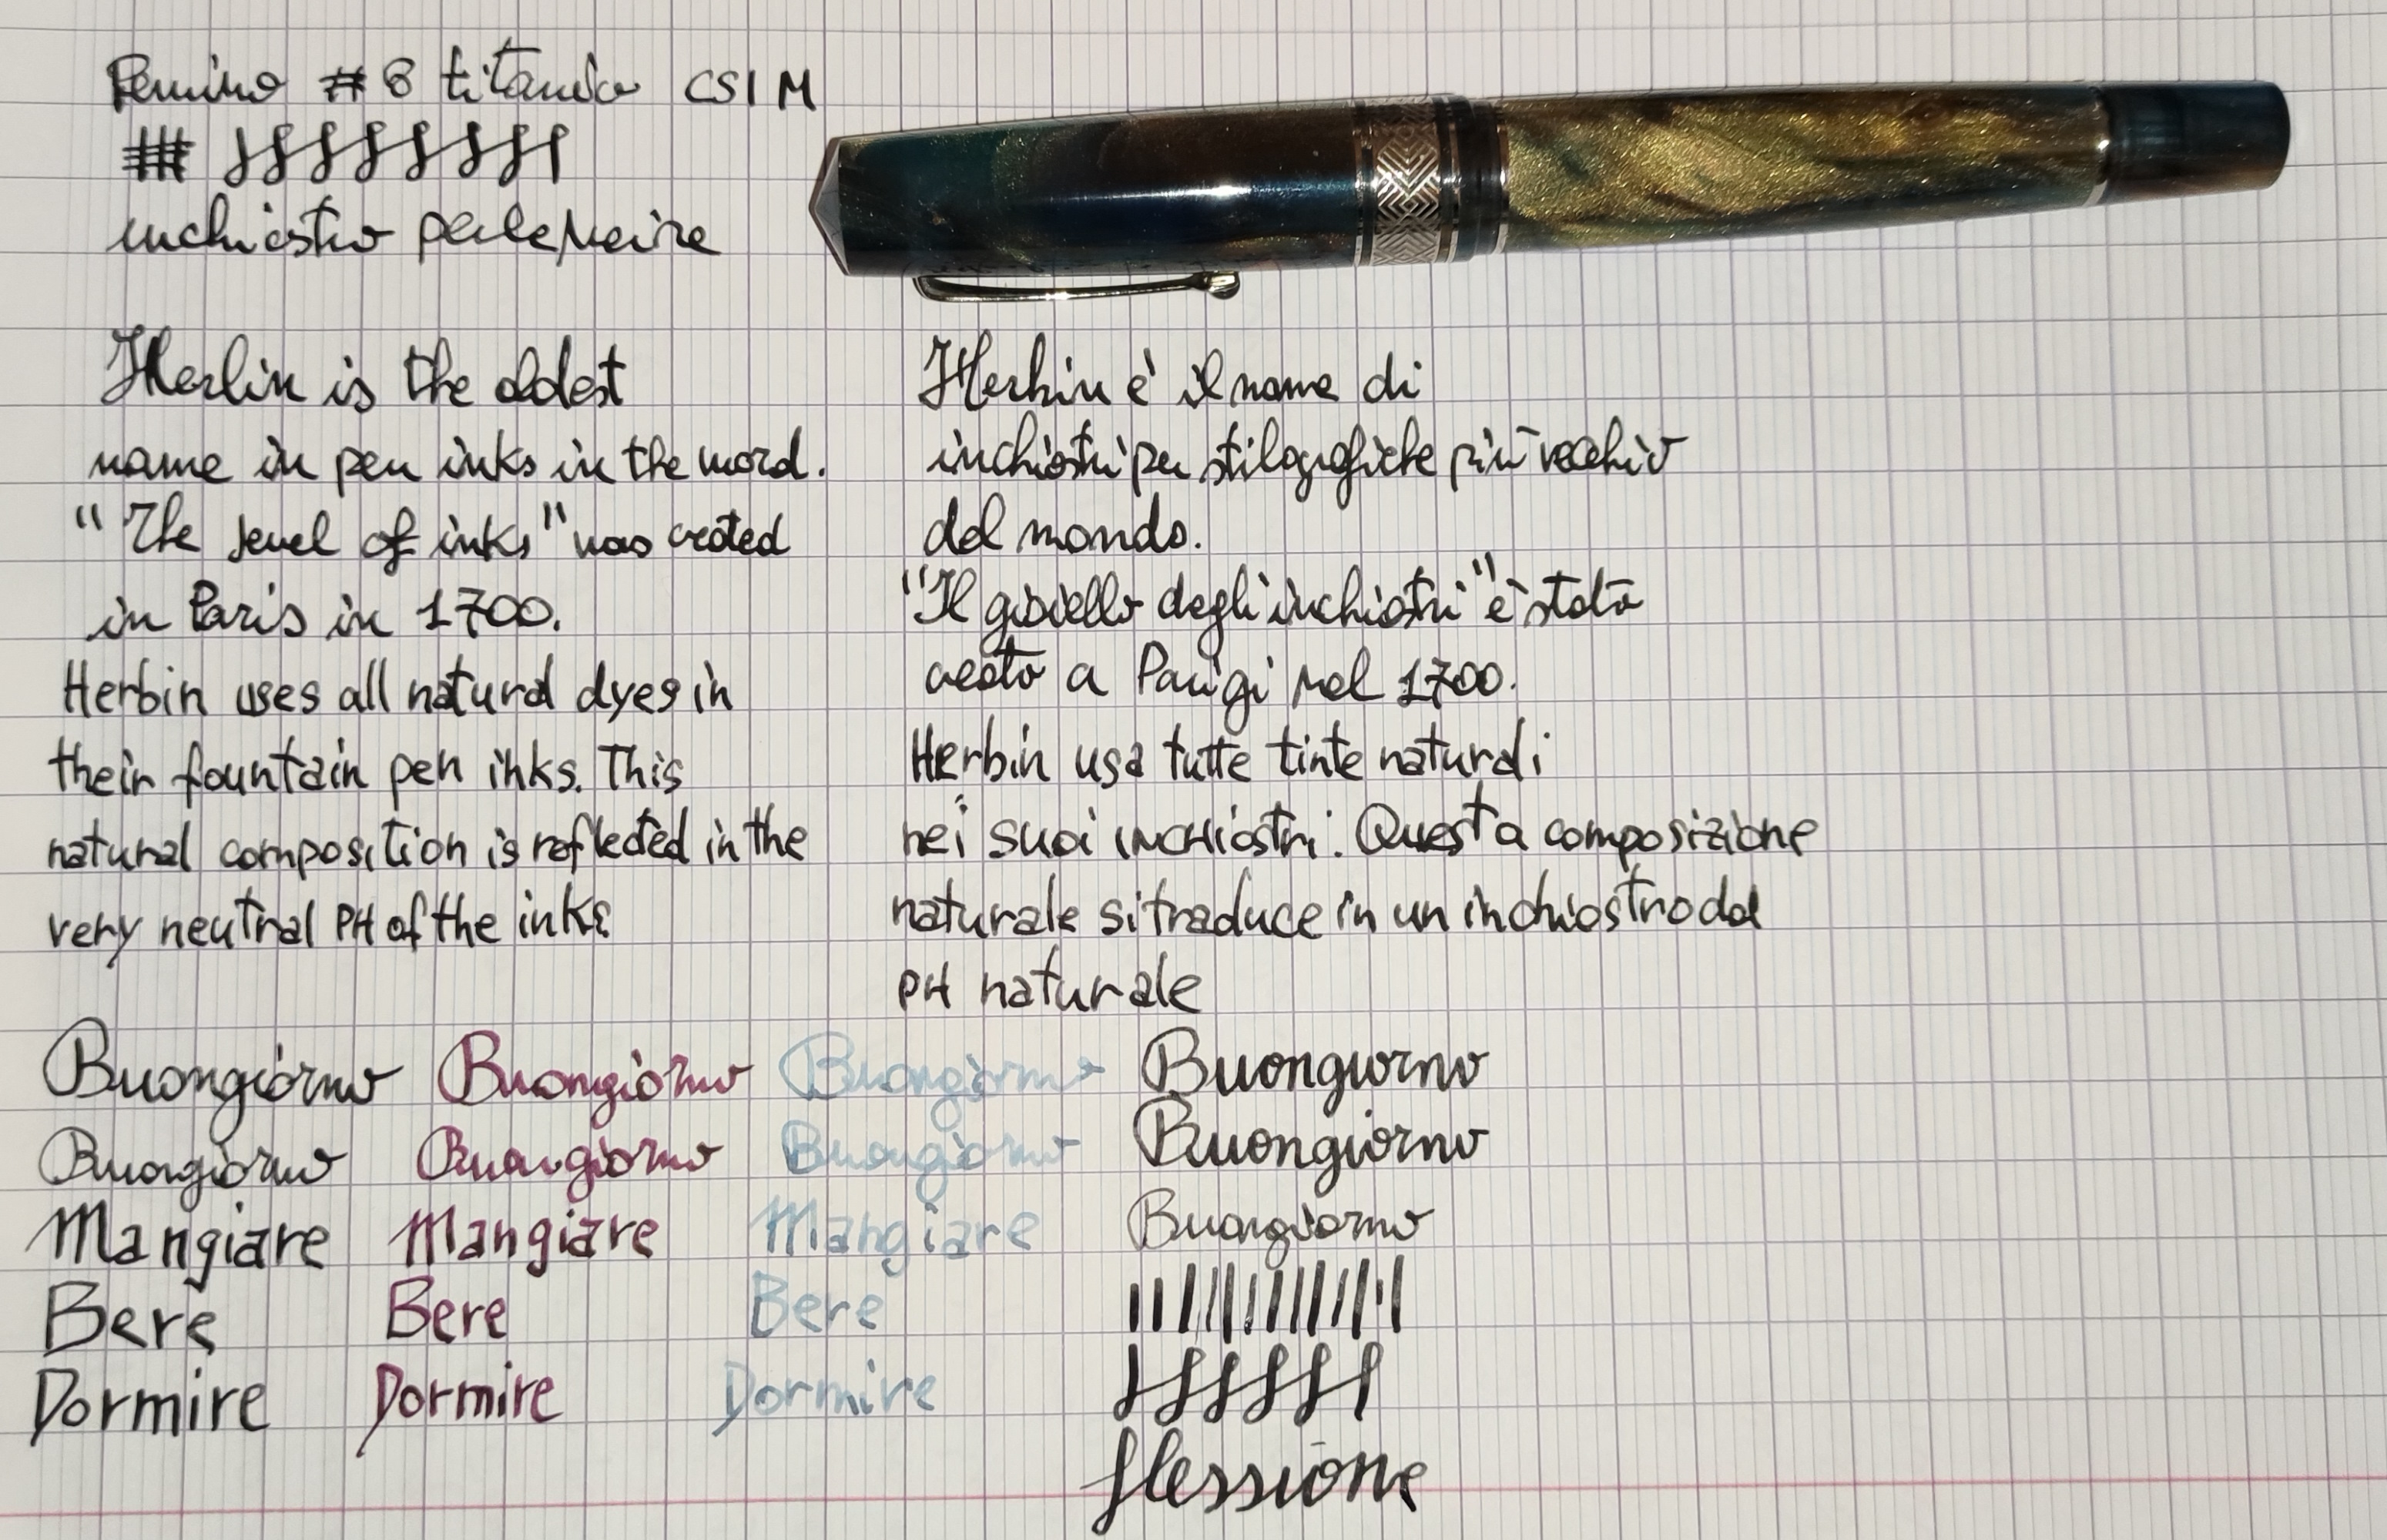 Pennino #8 titanio CSI M
inchiostro perle noire
Herbin is the oldest
name in pen inks in the word.
"The Jewel of inks" was created
in Paris in 1700.
Herbin uses all natural dyes in
their fountain pen inks. This
natural composition is reflected in the
very neutral PH of the inks
Herbin è il nome di
inchiostri per stilografiche più vecchio
del mondo.
"Il gioiello degli inchiostri" è stato
creato a Parigi nel 1700.
Herbin usa tutte tinte naturali
nei suoi inchiostri. Questa composizione
naturale si traduce in un inchiostro dal
PH naturale
Buongiorno Buongiorno Buongiorno Buongiorno
Buongiorno Buongiorno Buongiorno Buongiorno
Mangiare Mangiare Mangiare Buongiorno
Bere Bere Bere
Dormire Dormire Dormire
flessione